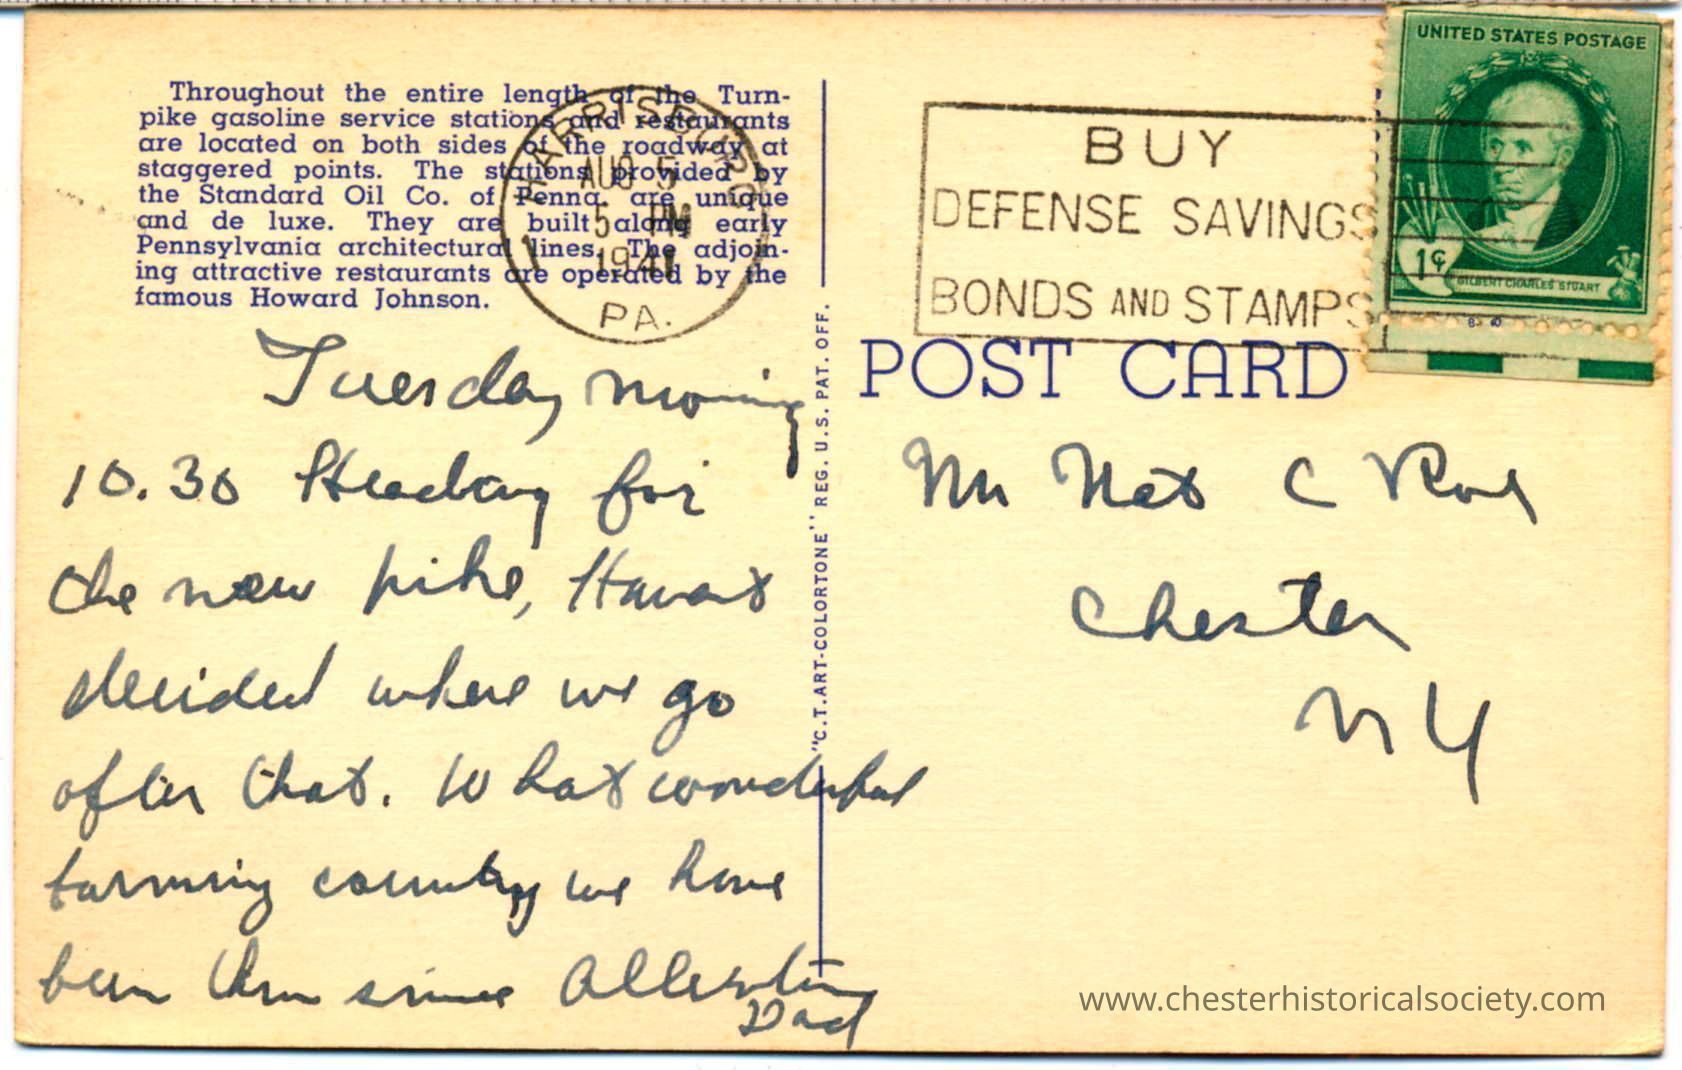 Throughout the entire length of the Turn-
pike gasoline service stations and restaurants
are located on both sides of the roadway at
staggered points. The stations provided by
the Standard Oil Co. of Penna. are unique
and de luxe. They are built along early
Pennsylvania architectural lines. The adjoin-
ing attractive restaurants are operated by the
famous Howard Johnson.
HARRISBURG
AUG 5
5 PM
1941
PA.
1
BUY
DEFENSE SAVINGS
BONDS AND STAMPS
UNITED STATES POSTAGE
1¢
GILBERT CHARLES STUART
POST CARD
"C.T. ART-COLORTONE" REG. U.S. PAT. OFF.
Tuesday morning
10.30 Heading for
the new pike, Havent
decided where we go
after that. What wonderful
farming country we have
been thru since Allentown
Dad
Mr Nat C Roe
Chester
N Y
www.chesterhistoricalsociety.com